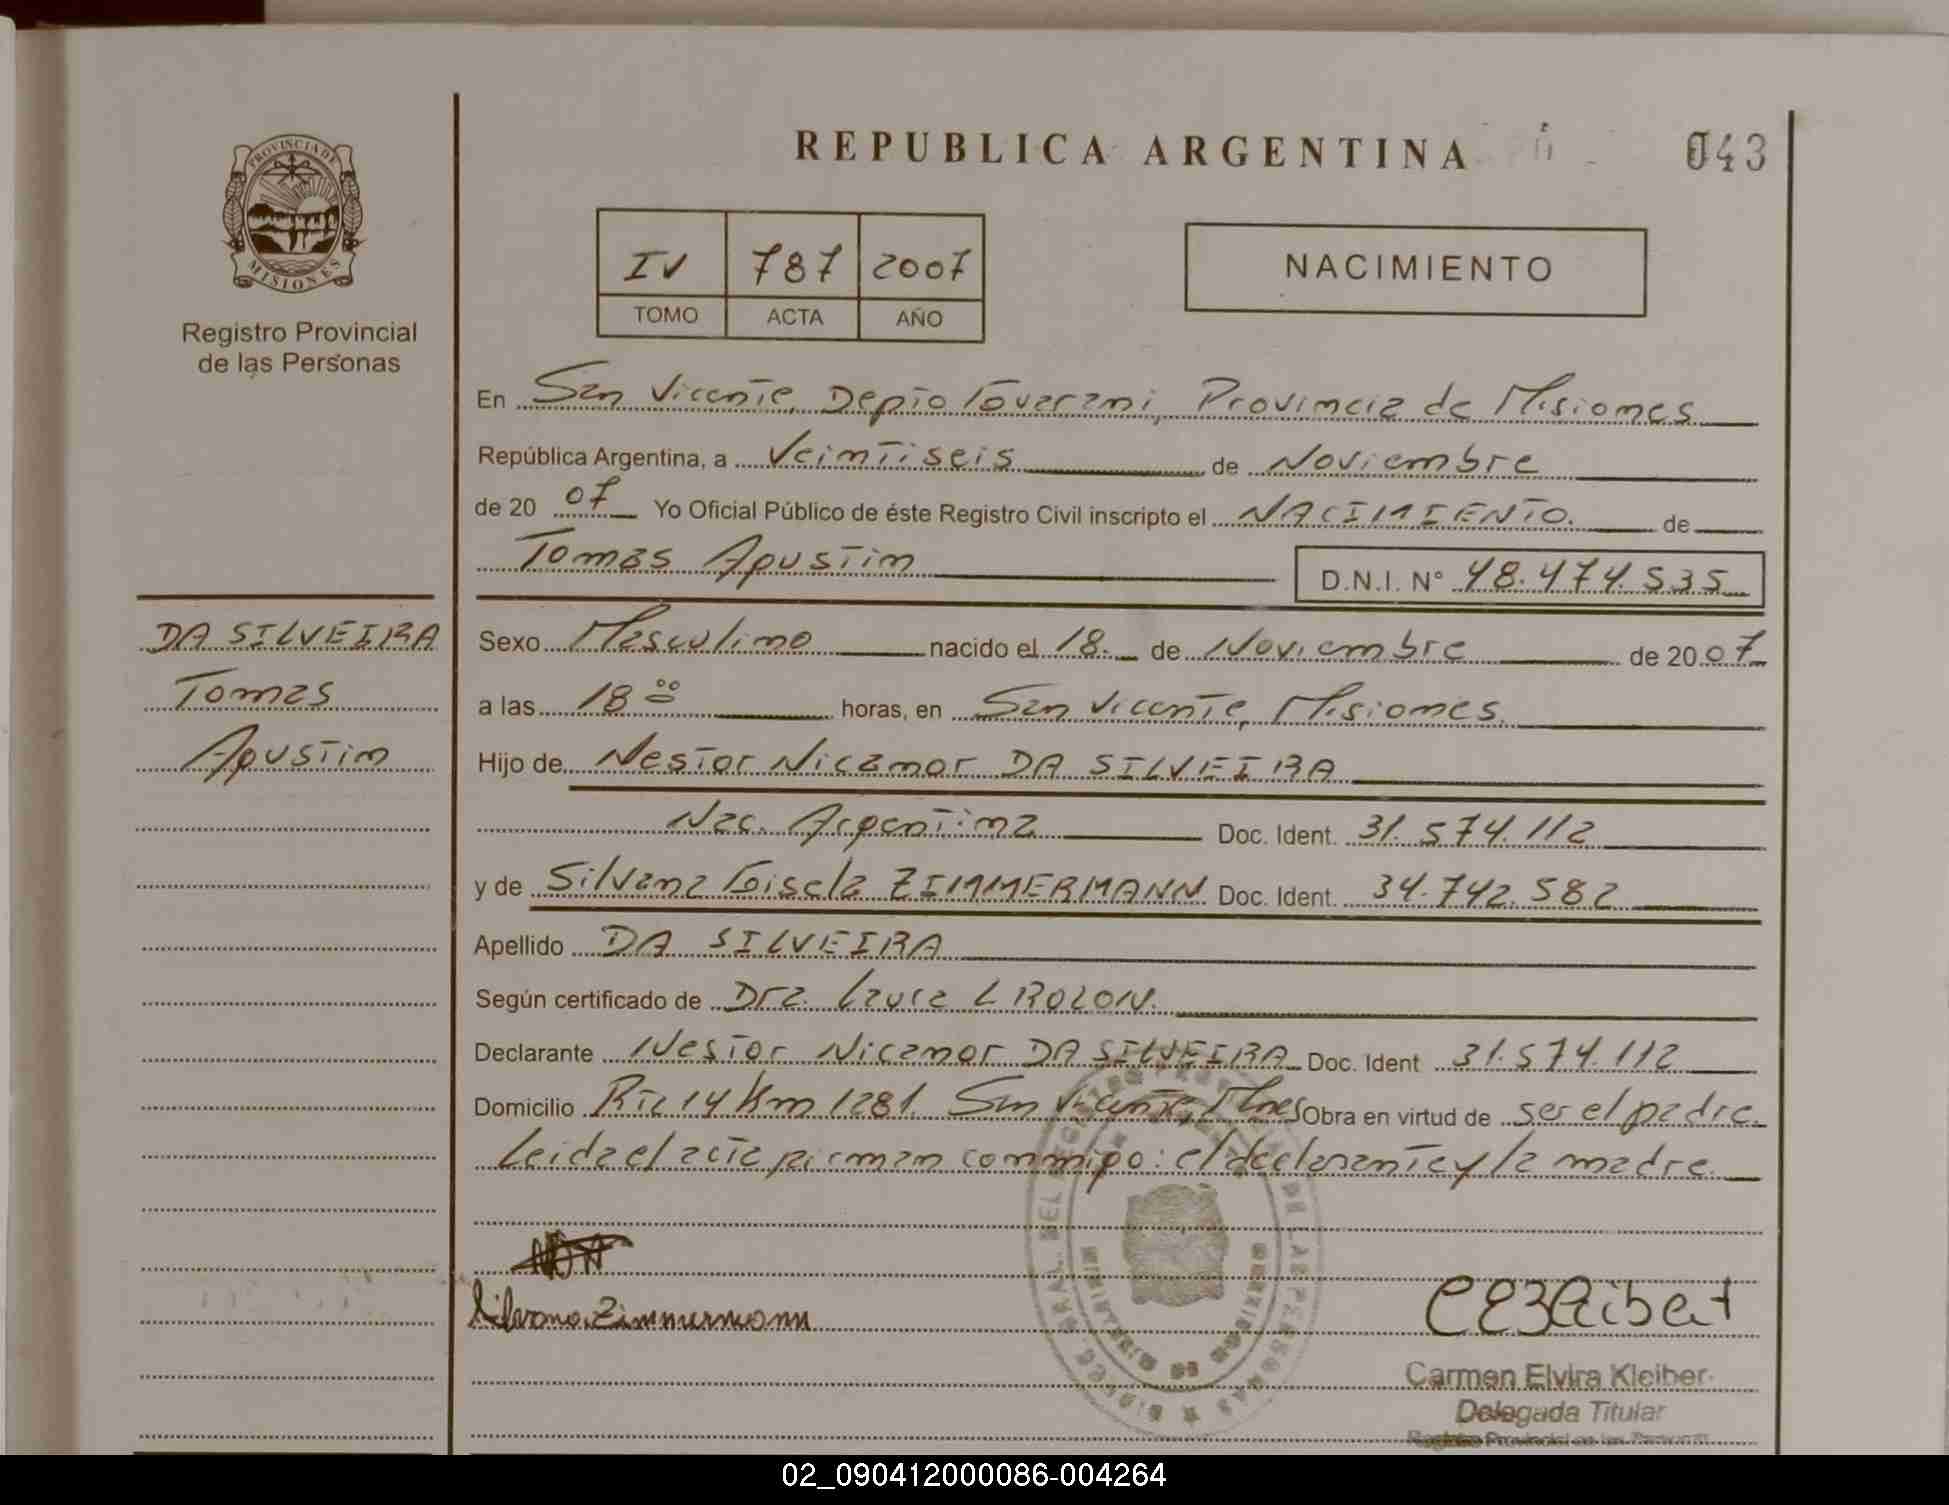 REPUBLICA ARGENTINA
043
PROVINCIA DE
MISIONES
Registro Provincial
de las Personas
IV 787 2007
TOMO ACTA AÑO
NACIMIENTO
En San Vicente, Depto Guarani, Provincia de Misiones
República Argentina, a Veintiseis de Noviembre
de 2007 Yo Oficial Público de éste Registro Civil inscripto el NACIMIENTO. de
Tomas Agustin D.N.I. N° 48.474.535
DA SILVEIRA
Tomas
Agustin
Sexo Masculino nacido el 18. de Noviembre de 2007
a las 18 00 horas, en San Vicente, Misiones.
Hijo de Nestor Nicanor DA SILVEIRA
Nac. Argentina Doc. Ident. 31.574.112
y de Silvana Gisela ZIMMERMANN Doc. Ident. 34.742.582
Apellido DA SILVEIRA
Según certificado de Dra. Laura L ROLON.
Declarante Nestor Nicanor DA SILVEIRA Doc. Ident 31.574.112
Domicilio Rta 14 Km 1281. San Vicente, Mnes Obra en virtud de ser el padre.
Leida el acta firman conmigo: el declarante y la madre.
Silvana Zimmermann
Carmen Elvira Kleiber
Delegada Titular
Registro Provincial de las Personas
02_090412000086-004264